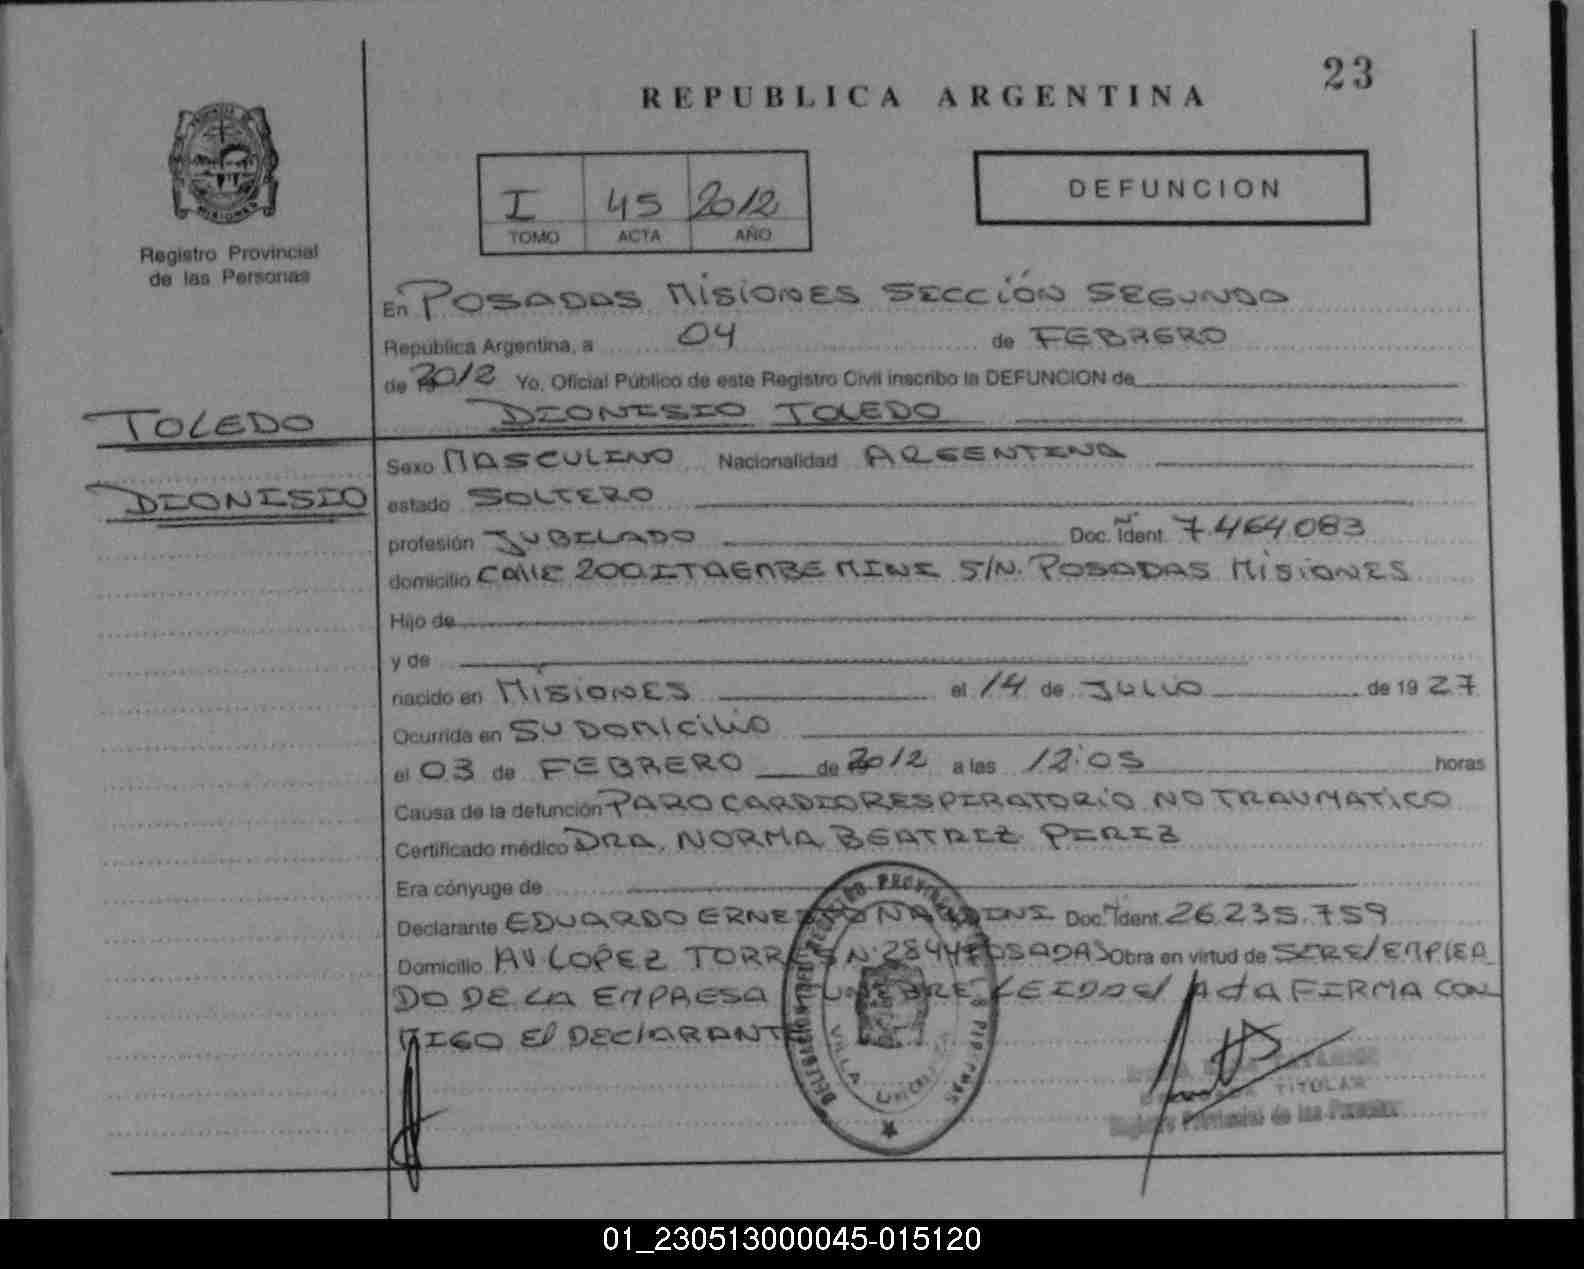 23
REPUBLICA ARGENTINA
I 45 2012
TOMO ACTA AÑO
DEFUNCION
MISIONES
Registro Provincial
de las Personas
En POSADAS MISIONES SECCIÓN SEGUNDA
Republica Argentina, a 04 de FEBRERO
de 2012 Yo, Oficial Público de este Registro Civil inscribo la DEFUNCION de
DIONISIO TOLEDO
TOLEDO
DIONISIO
Sexo MASCULINO Nacionalidad ARGENTINA
estado SOLTERO
profesión JUBILADO Doc. Ident. 7.464.083
domicilio CALLE 200 ITAEMBE MINI S/N. POSADAS MISIONES
Hijo de
y de
nacido en MISIONES el 14 de JULIO de 19 27
Ocurrida en SU DOMICILIO
el 03 de FEBRERO de 2012 a las 12:05 horas
Causa de la defunción PARO CARDIORESPIRATORIO NO TRAUMATICO
Certificado médico DRA. NORMA BEATRIZ PEREZ
Era cónyuge de
Declarante EDUARDO ERNESTO Doc. Ident. 26.235.759
Domicilio AV LOPEZ TORRES N° 2844 POSADAS Obra en virtud de SERE/EMPLEA
DO DE LA EMPRESA FUNEBRE LEIDA EL ACTA FIRMA CON
MIGO El DEClARANTE
VILLA
TITULAR
Registro Provincial de las Personas
01_230513000045-015120